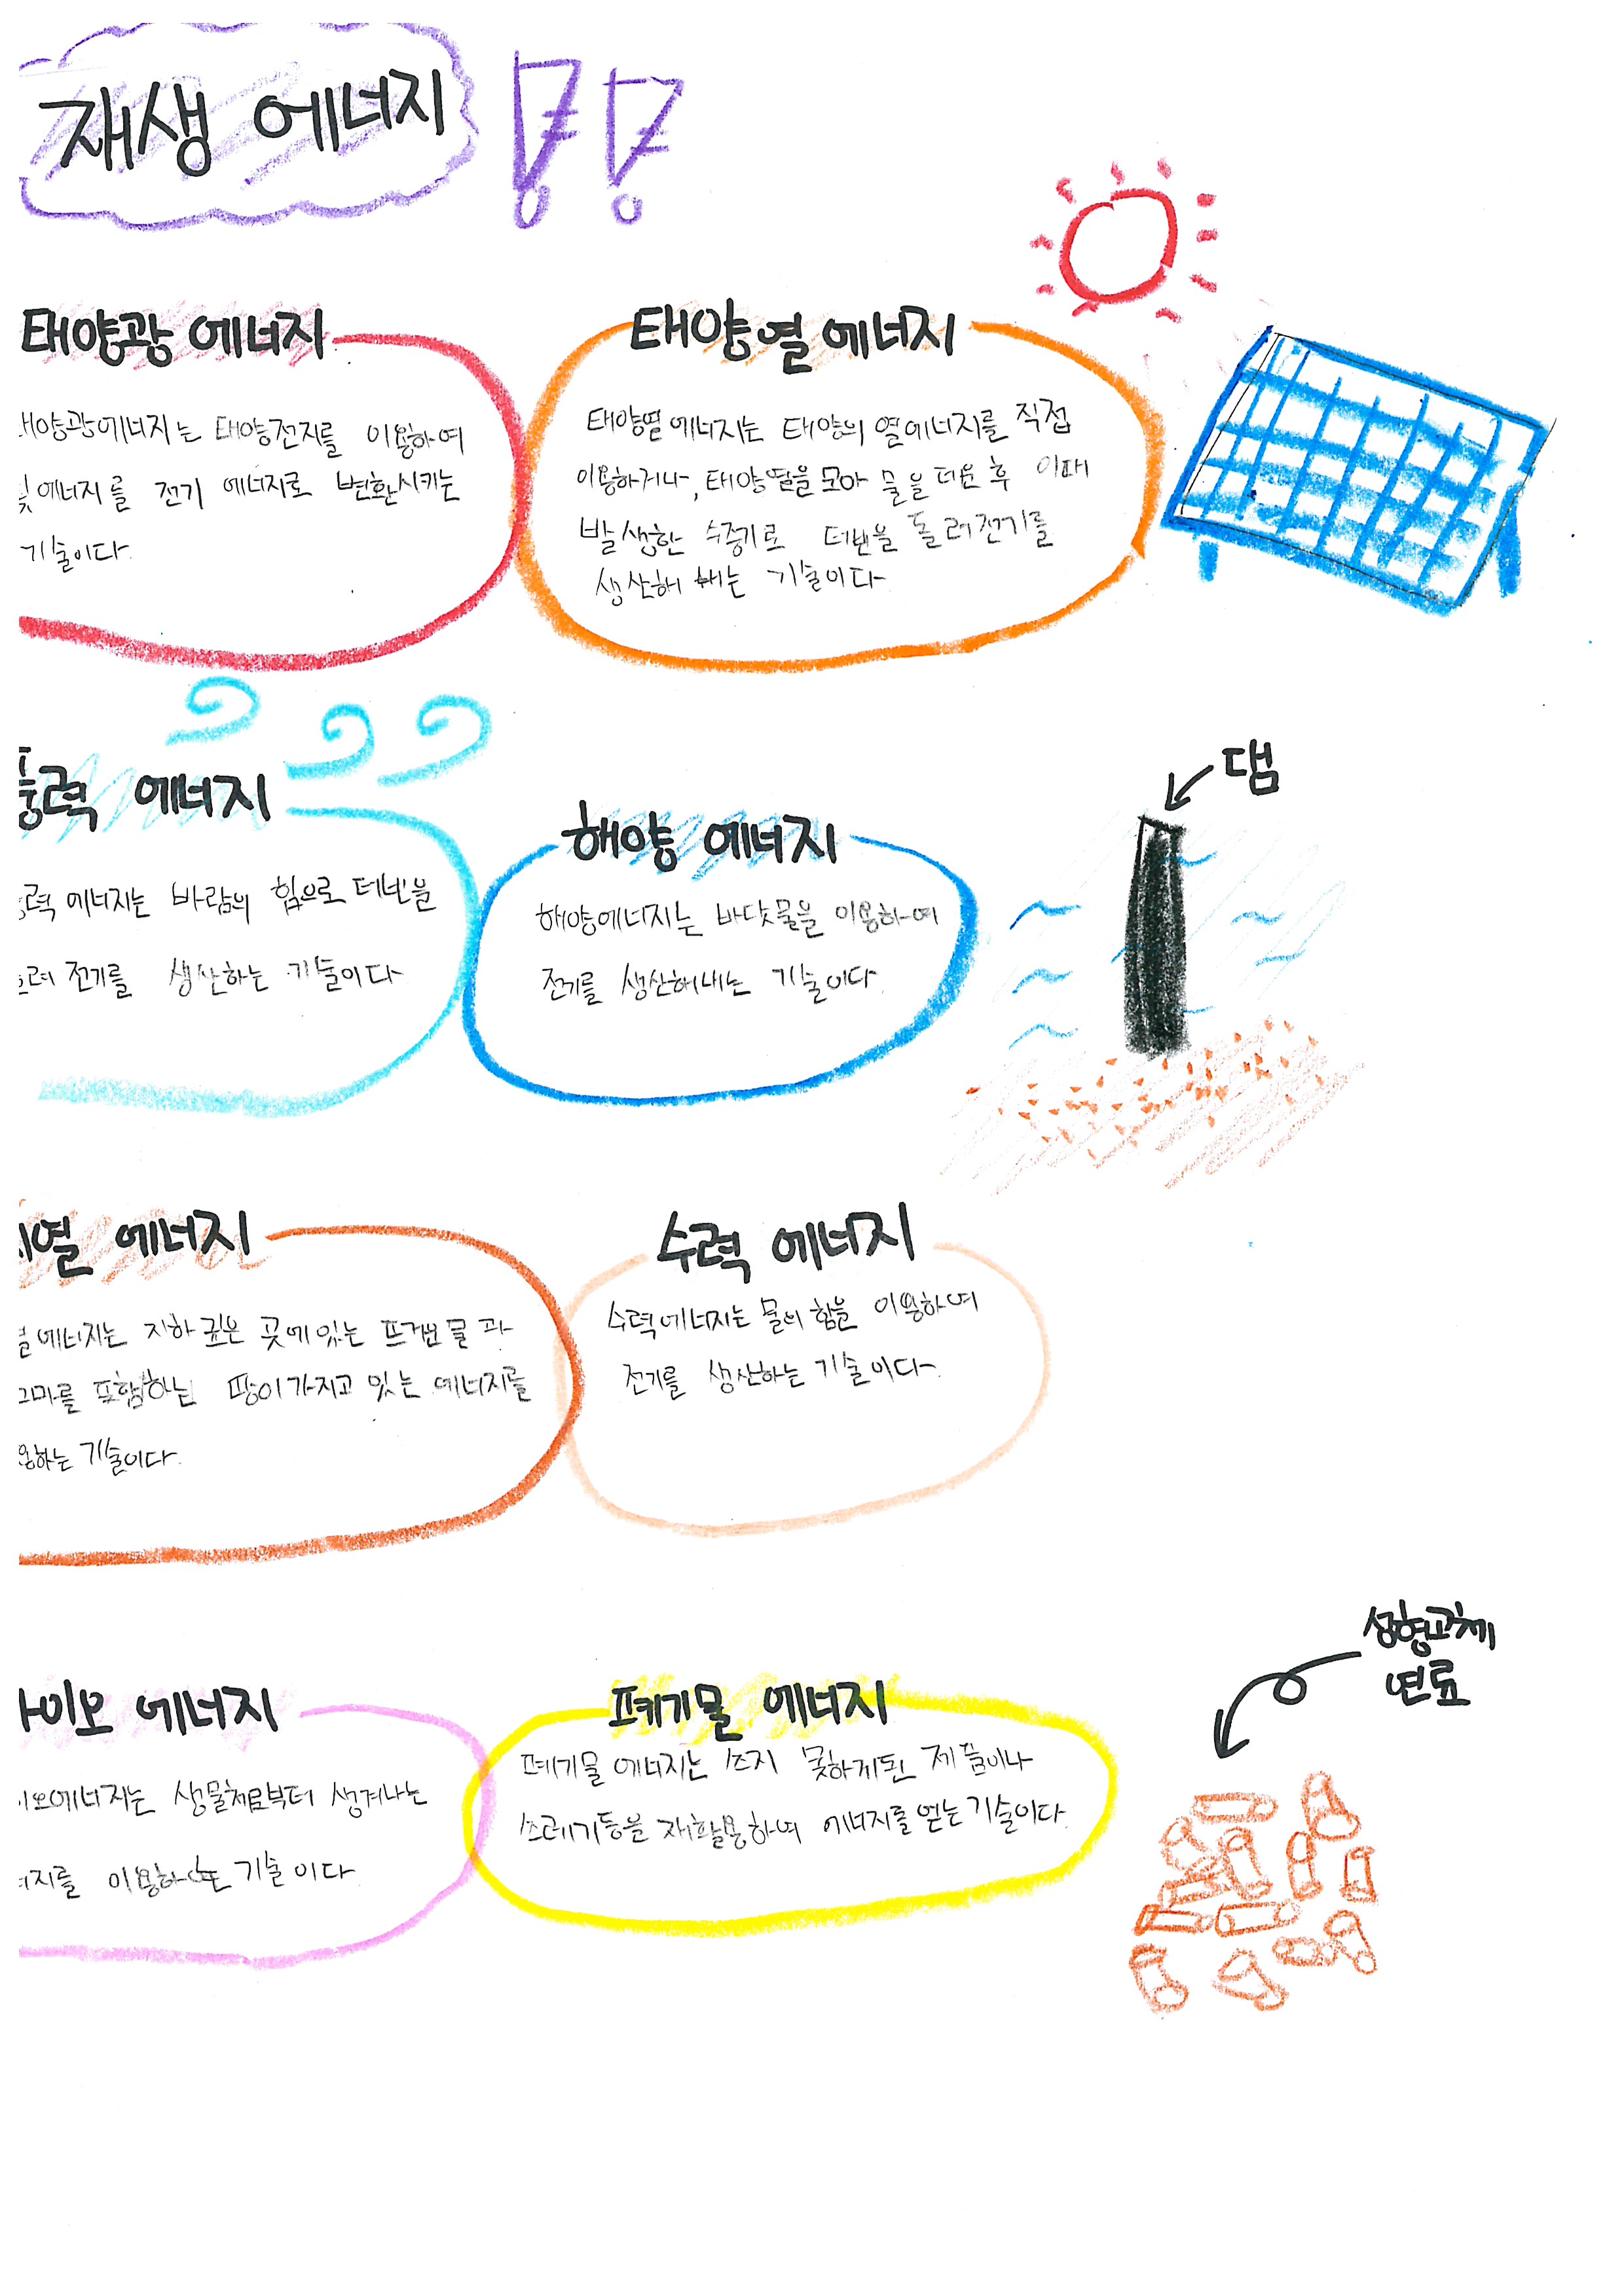 재생 에너지
태양광 에너지
태양광에너지는 태양전지를 이용하여
빛에너지를 전기 에너지로 변환시키는
기술이다.
태양열에너지
태양열에너지는 태양의 열에너지를 직접
이용하거나, 태양열을 모아 물을 데운 후 이때
발생한 수증기로 터빈을 돌려전기를
생산해 내는 기술이다
풍력 에너지
력 에너지는 바람의 힘으로 터빈을
전기를 생산하는 기술이다
해양 에너지
해양에너지는 바닷물을 이용하여
전기를 생산해내는 기술이다.
댐
지열 에너지
에너지는 지하 깊은 곳에 있는 뜨거운 물과
그마를 포함하는 땅이 가지고 있는 에너지를
용하는 기술이다.
수력 에너지
수력에너지는 물의 힘을 이용하여
전기를 생산하는 기술이다.
바이오 에너지
이오에너지는 생물체로부터 생겨나는
너지를 이용하는 기술이다.
폐기물 에너지
폐기물 에너지는 쓰지 못하게된 제품이나
쓰레기등을 재활용하여 에너지를 얻는기술이다.
성형고체
연료